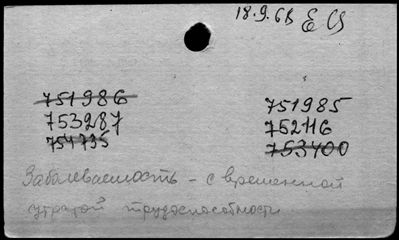 18.9.68 Е
751986 751985
753287 752116
754735 753400
Заболеваемость – с временной
утратой трудоспособности